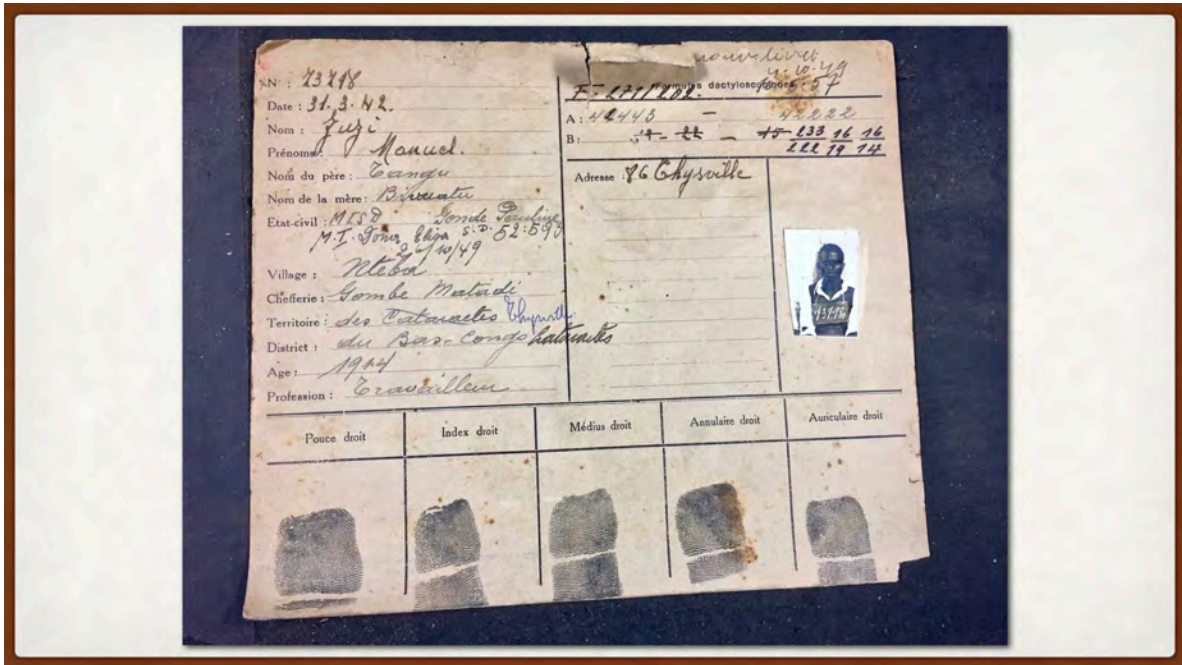 N° : 23718
Date : 31.3.42.
Nom : Zuzi
Prénoms : Manuel.
Nom du père : Tangu
Nom de la mère :
Etat-civil : M I S D Gonde Pauline
M.I. Eliza S.D. 52.593
10/49
Village : Nteba
Chefferie : Gombe Matadi
Territoire : des Cataractes Thysville
District : du Bas-Congo Cataractes
Age : 1914
Profession : Travailleur
nouv. livret
4.10.49
Formules dactyloscopiques 57
F- 271/202.
A : 42443 - 42222
B : 19 - 22 - 15 233 16 16
222 19 14
Adresse : Thysville
13718
Pouce droit
Index droit
Médius droit
Annulaire droit
Auriculaire droit